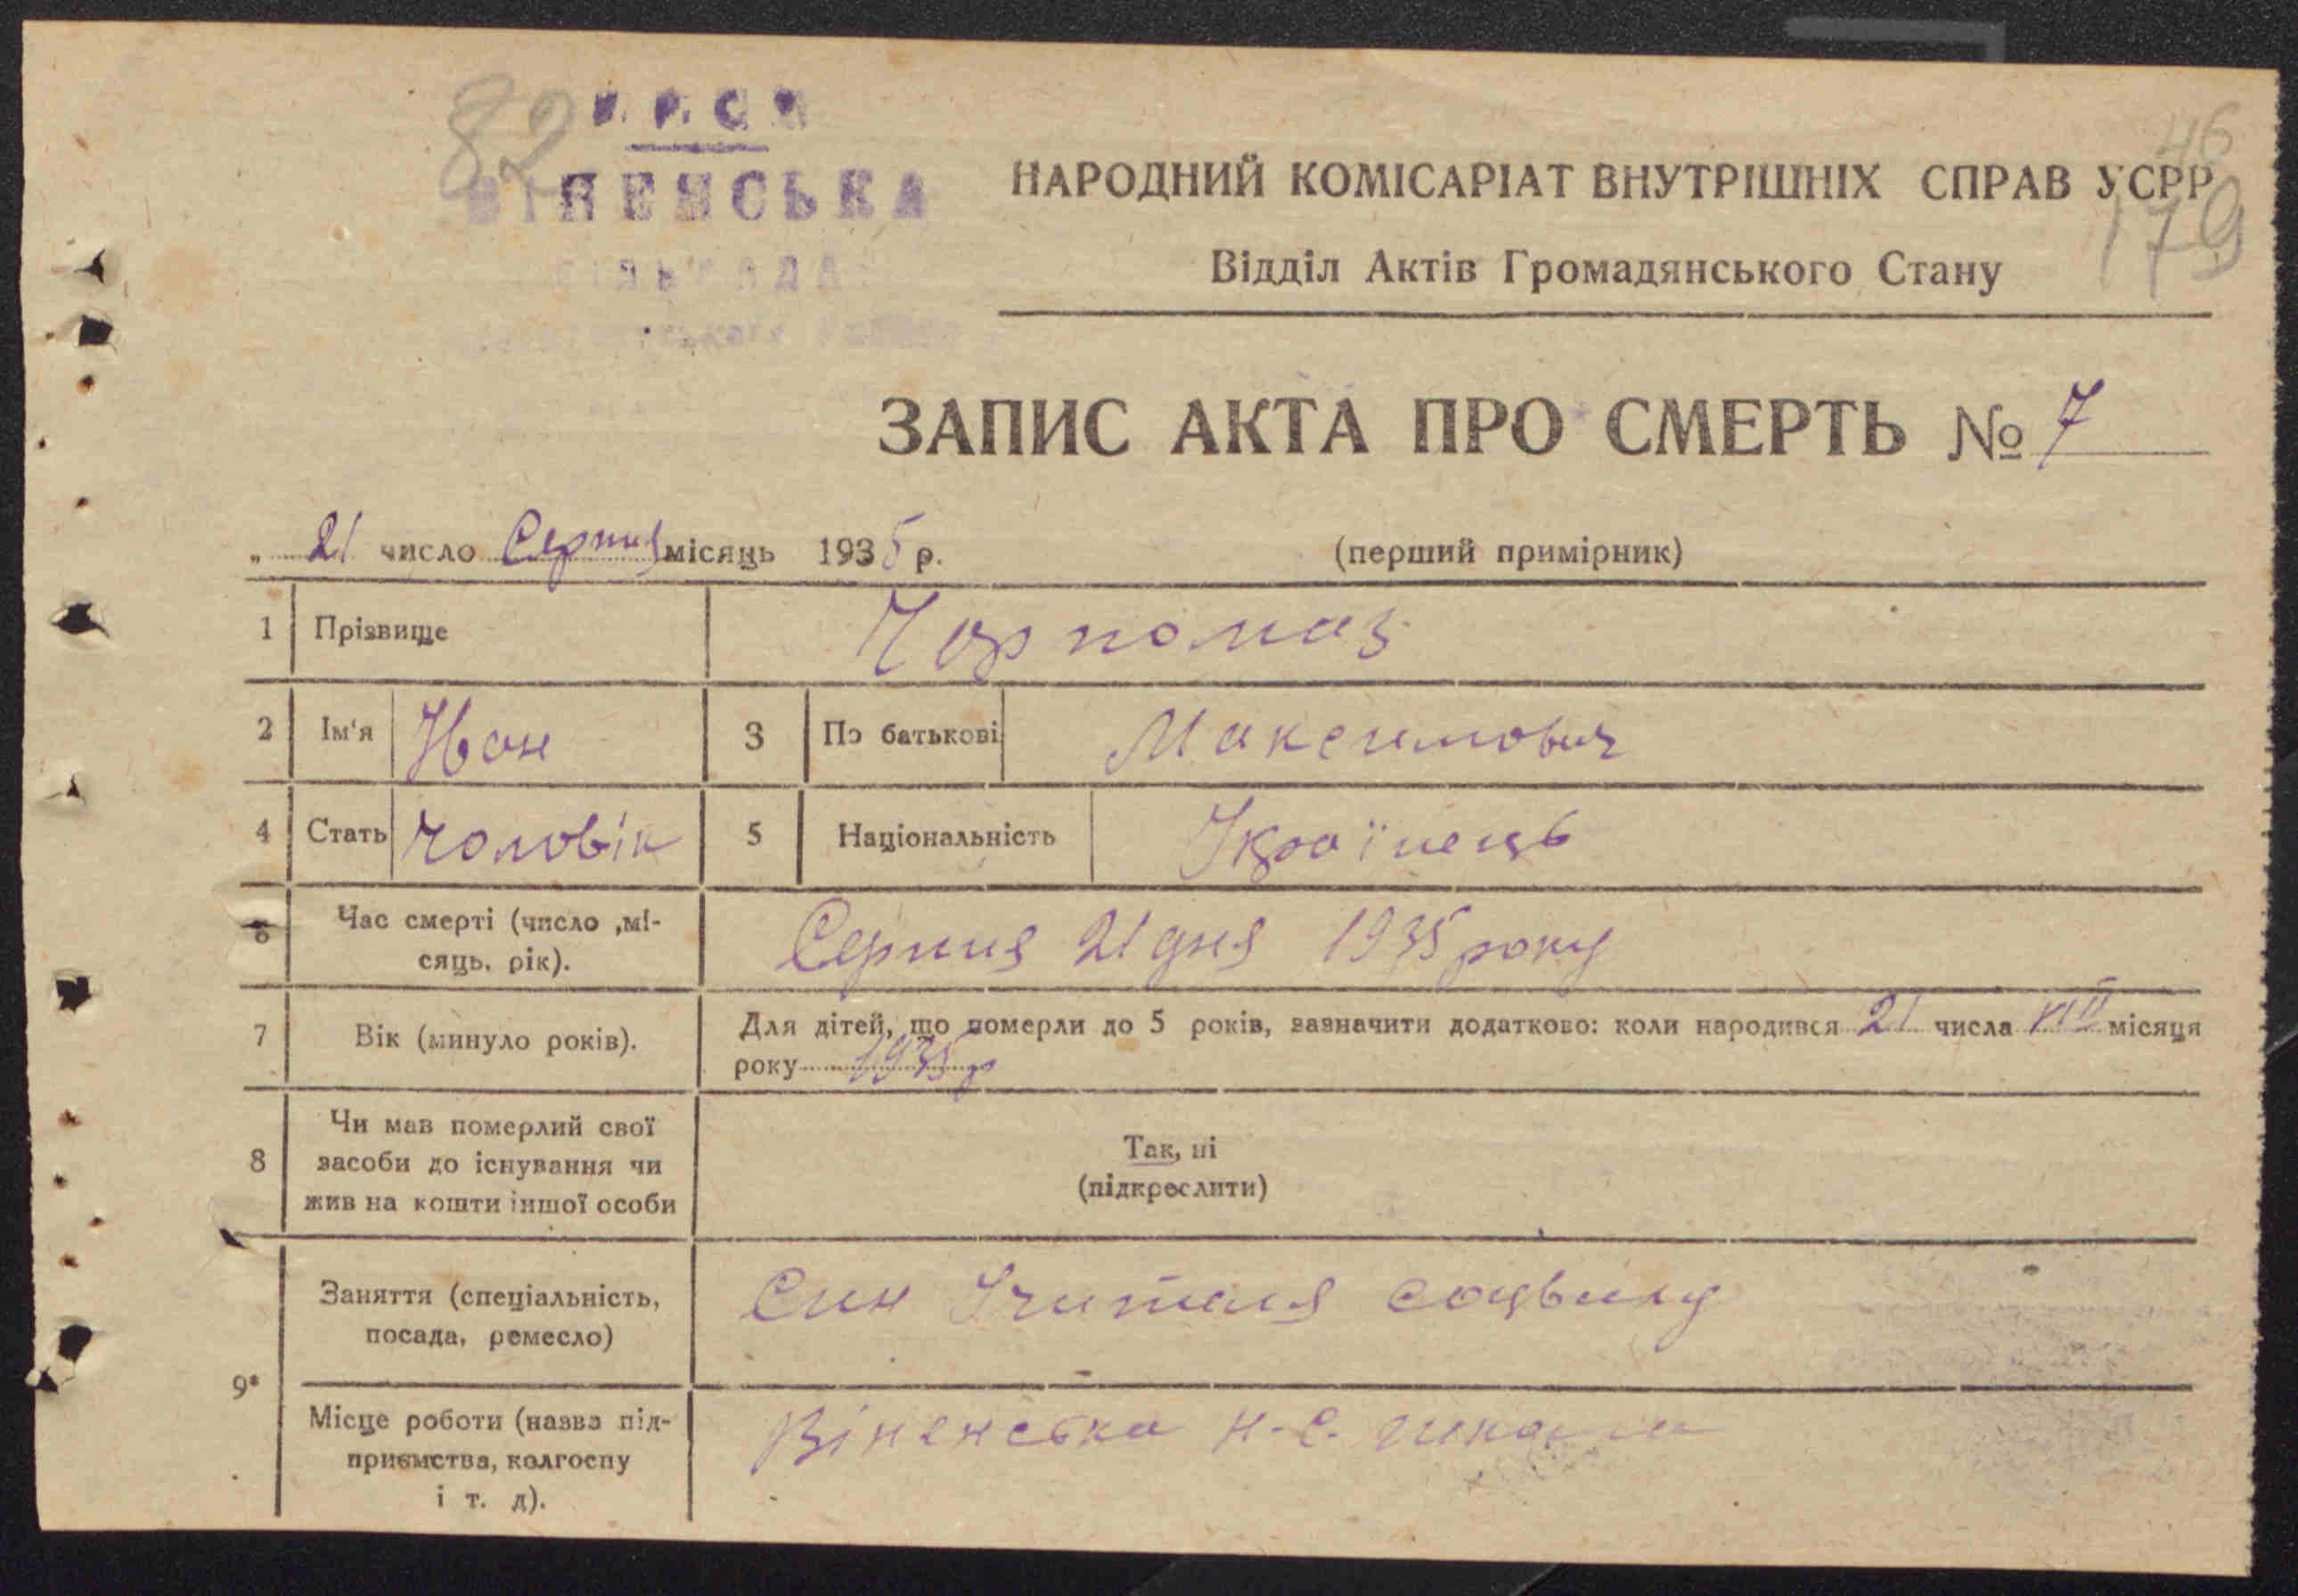 82
46
179
ВІНЕНСЬКА
СІЛЬРАДА
НАРОДНИЙ КОМІСАРІАТ ВНУТРІШНІХ СПРАВ УСРР
Відділ Актів Громадянського Стану
ЗАПИС АКТА ПРО СМЕРТЬ № 7
„ 21 число Серпня місяць 1935 р. (перший примірник)
1 Прізвище Чорномаз
2 Ім'я Іван 3 По батькові Максимович
4 Стать чоловік 5 Національність Українець
6 Час смерті (число ,мі-
сяць, рік). Серпня 21 дня 1935 року
7 Вік (минуло років). Для дітей, що померли до 5 років, зазначити додатково: коли народився 21 числа VIII місяця
року 1935 р
8 Чи мав померлий свої
засоби до існування чи
жив на кошти іншої особи
Так, ні
(підкреслити)
9*
Заняття (спеціальність,
посада, ремесло) Син Учителя соцвиху
Місце роботи (назва під-
приємства, колгоспу
і т. д). Віненська н-с. школа